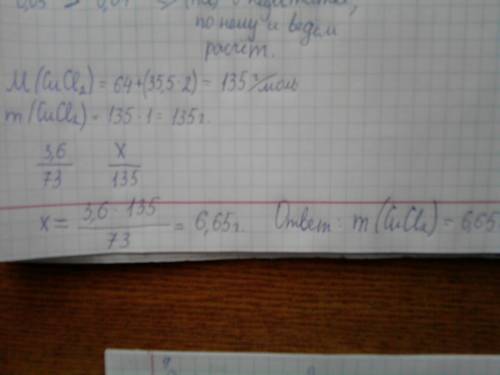 0,05 > 0,04
по нему и ведем
расчёт.
M(CuCl₂) = 64+(35,5·2) = 135 г/моль
m(CuCl₂) = 135·1 = 135 г.
3,6/73 X/135
x = 3,6·135/73 = 6,65 г. Ответ: m(CuCl₂) - 6,65